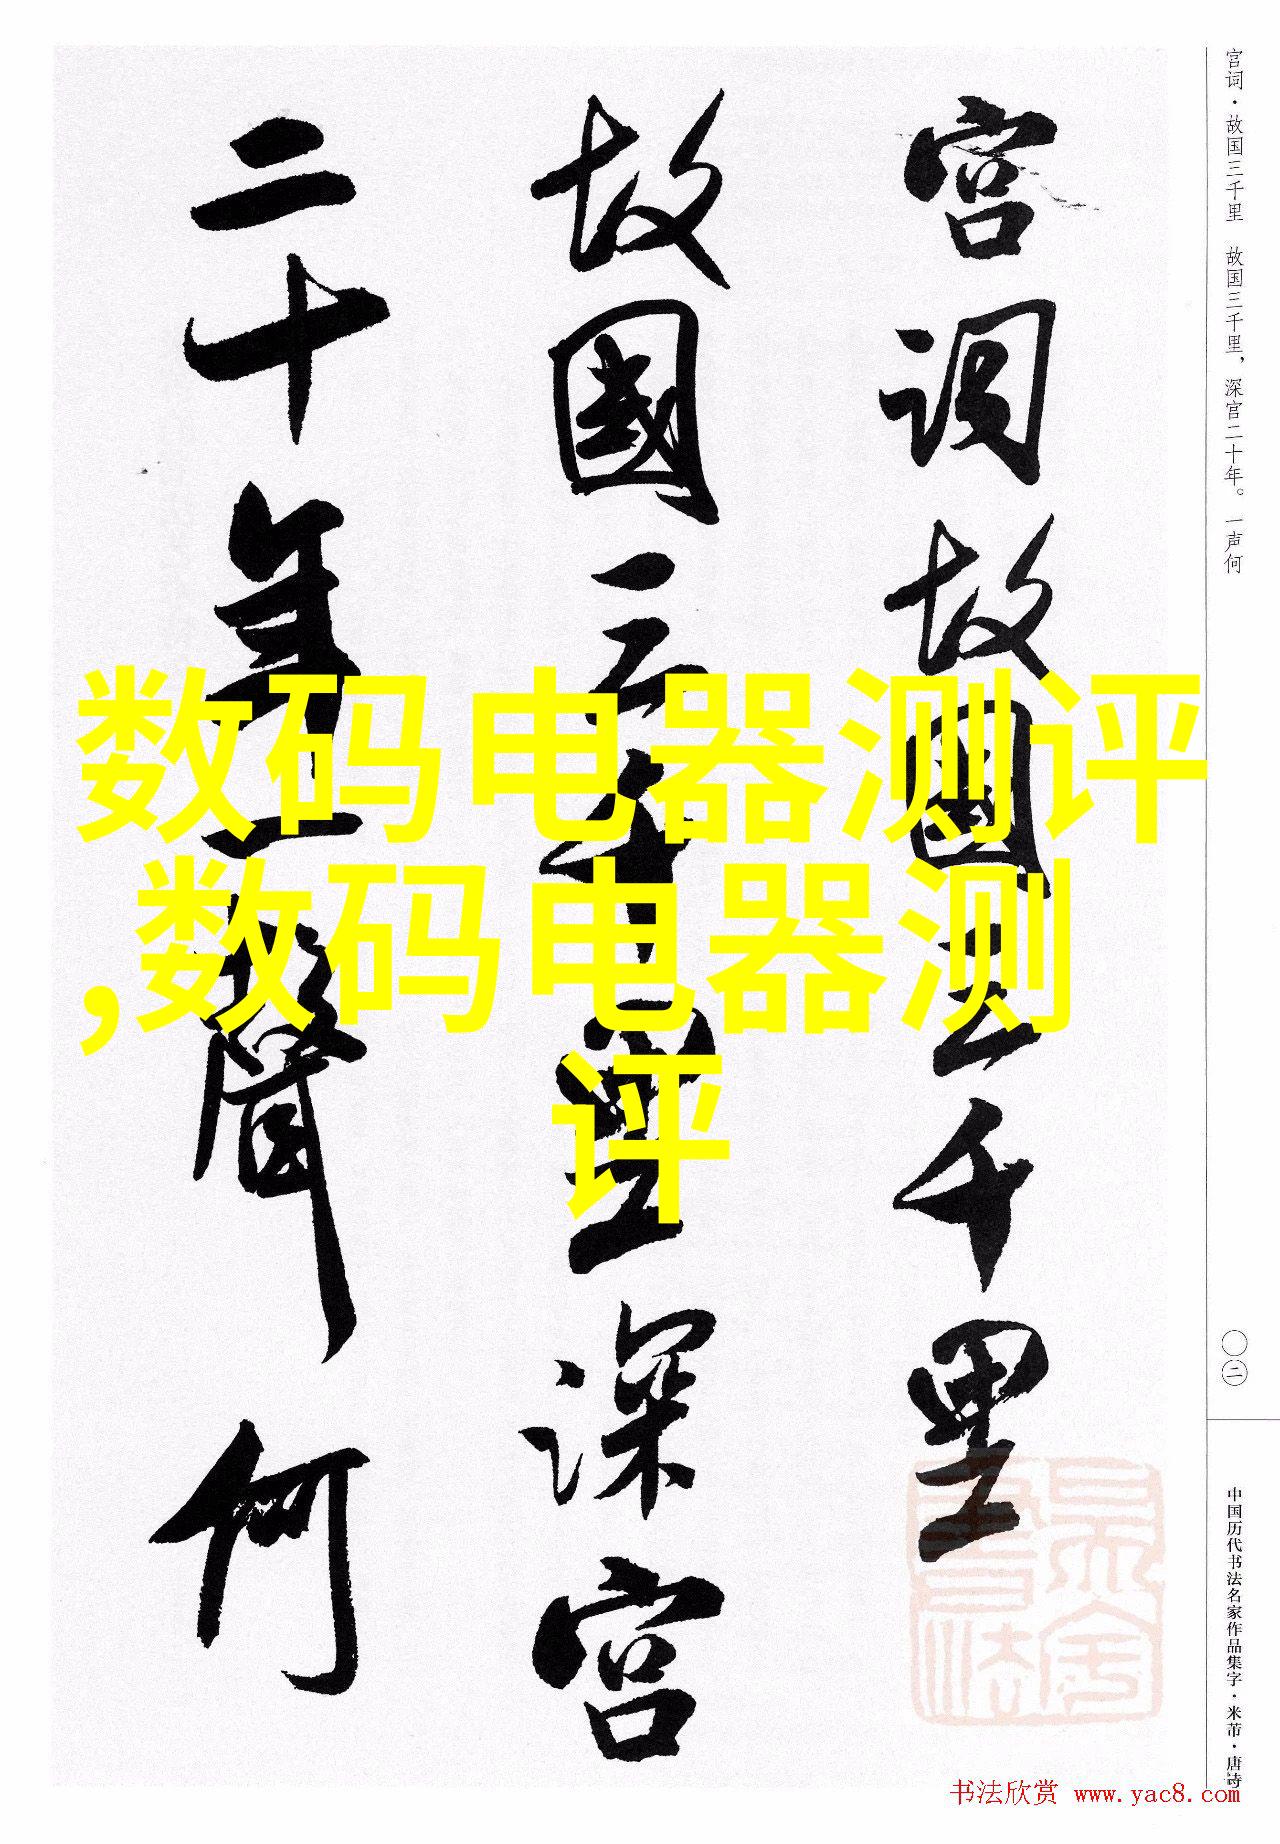 宫词·故国三千里　故国三千里，深宫二十年。一声何
〇二
中国历代书法名家作品集字·米芾·唐诗
宫词故國三千里
故國三千里深宫
二十年一聲何
数码电器测评
,数码电器测
评
书法欣赏 www.yac8.com